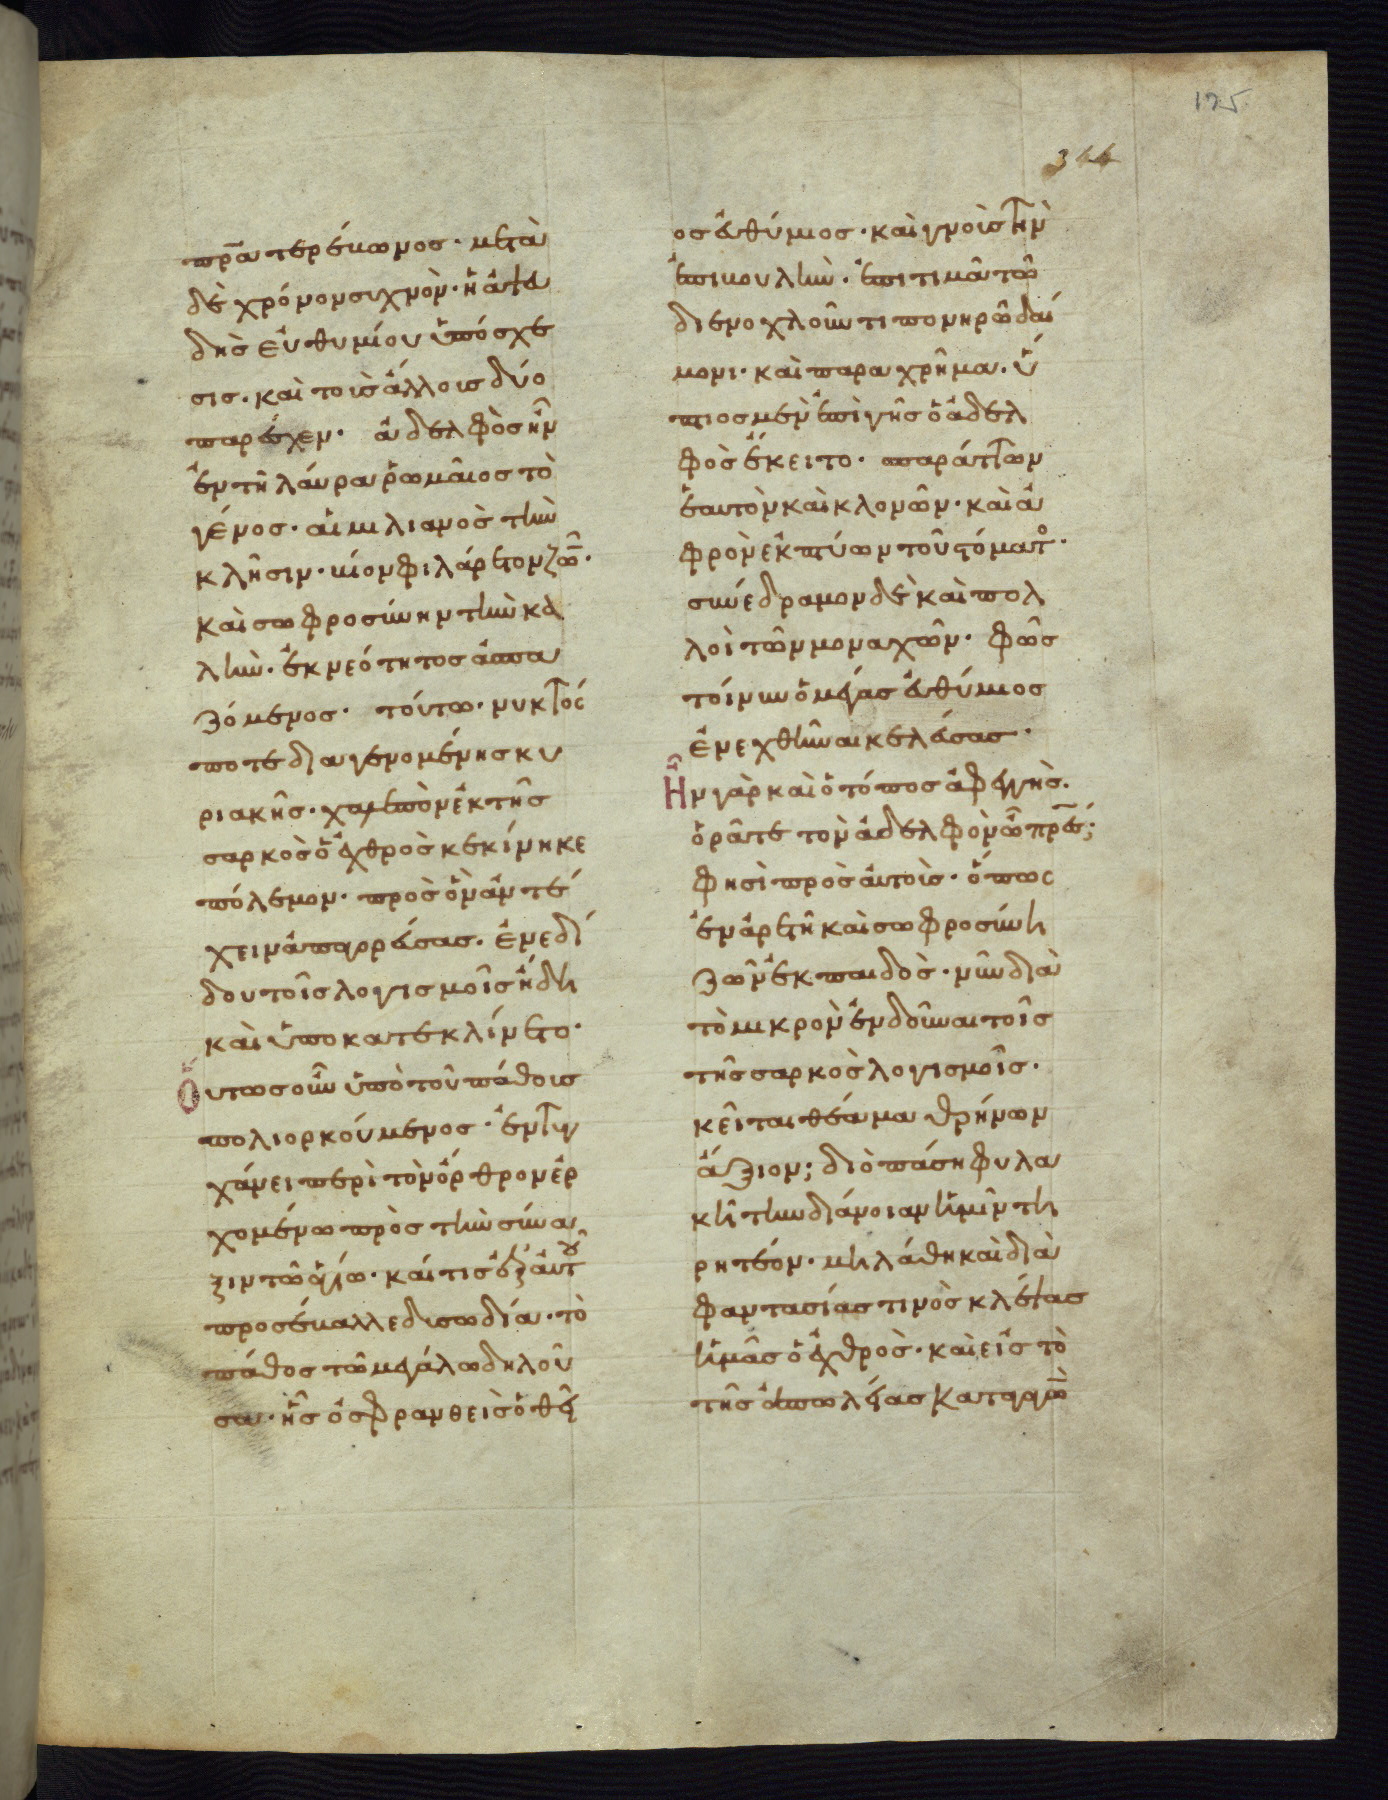 175
344
πρα τερέμωνος · μετὰ
δὲ χρόνον συχνὸν · ἡ ἀψευ
δὴς εὐθυμίου ὑπόσχε
σις · καὶ τοῖς ἄλλοις δύο
παρέσχεν · ἀδελφὸς ἦν
ἐν τῆ λαύρα ῥωμαῖος τὸ
γένος · αἰμιλιανὸς τὴν
κλῆσιν · βίον φιλάρετον ζῶ̅ ·
καὶ σωφροσύνην τὴν κα
λὴν · ἐκ νεότητος ἀσπα
ζόμενος · τούτω · νυκτός
ποτε διαγενομένης κυ
ριακῆς · χαλεπὸν ἐκ τῆς
σαρκὸς ὁ ἐχθρὸς κεκίνηκε
πόλεμον · πρὸς ὃν ἀντέ
χειν ἀπαγορεύσας · ἐνεδί
δου τοῖς λογισμοῖς ἤδη
καὶ ὑποκατεκλίνετο ·
Οὕτως οὖν ὑπὸ τοῦ πάθους
πολιορκούμενος · ἐντυγ
χάνει περὶ τὸν ὄρθρον ἐρ
χομένω πρὸς τὴν σύνα
ξιν τῶ ἁγίω · καί τις ἐξ αὐτοῦ
προσέβαλλε δυσωδία · τὸ
πάθος τῶ μεγάλω δηλοῦ
σα · ἧς ὀσφρανθεὶς ὁ θεῖ
ος εὐθύμιος · καὶ γνοὺς τὴν
ἐπιβουλὴν · ἐπιτιμᾶ τῶ
διενοχλοῦντι πονηρῶ δαί
μονι · καὶ παραχρῆμα · ὕ
πτιος μὲν ἐπὶ γῆς ὁ ἀδελ
φὸς ἔκειτο · σπαράττων
ἑαυτὸν καὶ κλονῶν · καὶ ἀ
φρὸν ἐκπτύων τοῦ στόματο ·
συνέδραμον δὲ καὶ πολ
λοὶ τῶν μοναχῶν · φῶς
τοίνυν ὁ μέγας εὐθύμιος
ἐνεχθῆναι κελεύσας ·
Ἦν γὰρ καὶ ὁ τόπος ἀφεγγὴς ·
ὁρᾶτε τὸν ἀδελφὸν ὦ πρε̅ς;
φησὶ πρὸς αὐτοὺς · ὅπως
ἐν ἀρετῆ καὶ σωφροσύνη
ζῶν ἐκ παιδὸς · νῦν διὰ
τὸ μικρὸν ἐνδοῦναι τοῖς
τῆς σαρκὸς λογισμοῖς ·
κεῖται θέαμα θρήνων
ἄξιον; διὸ πάση φυλα
κῆ τὴν διάνοιαν ἡμῖν τη
ρητέον · μὴ λάθη καὶ διὰ
φαντασίας τινὸς κλέψας
ἡμᾶς ὁ ἐχθρὸς · καὶ εἰς τὸ
τῆς ἀπωλείας καταγαγὼ̅